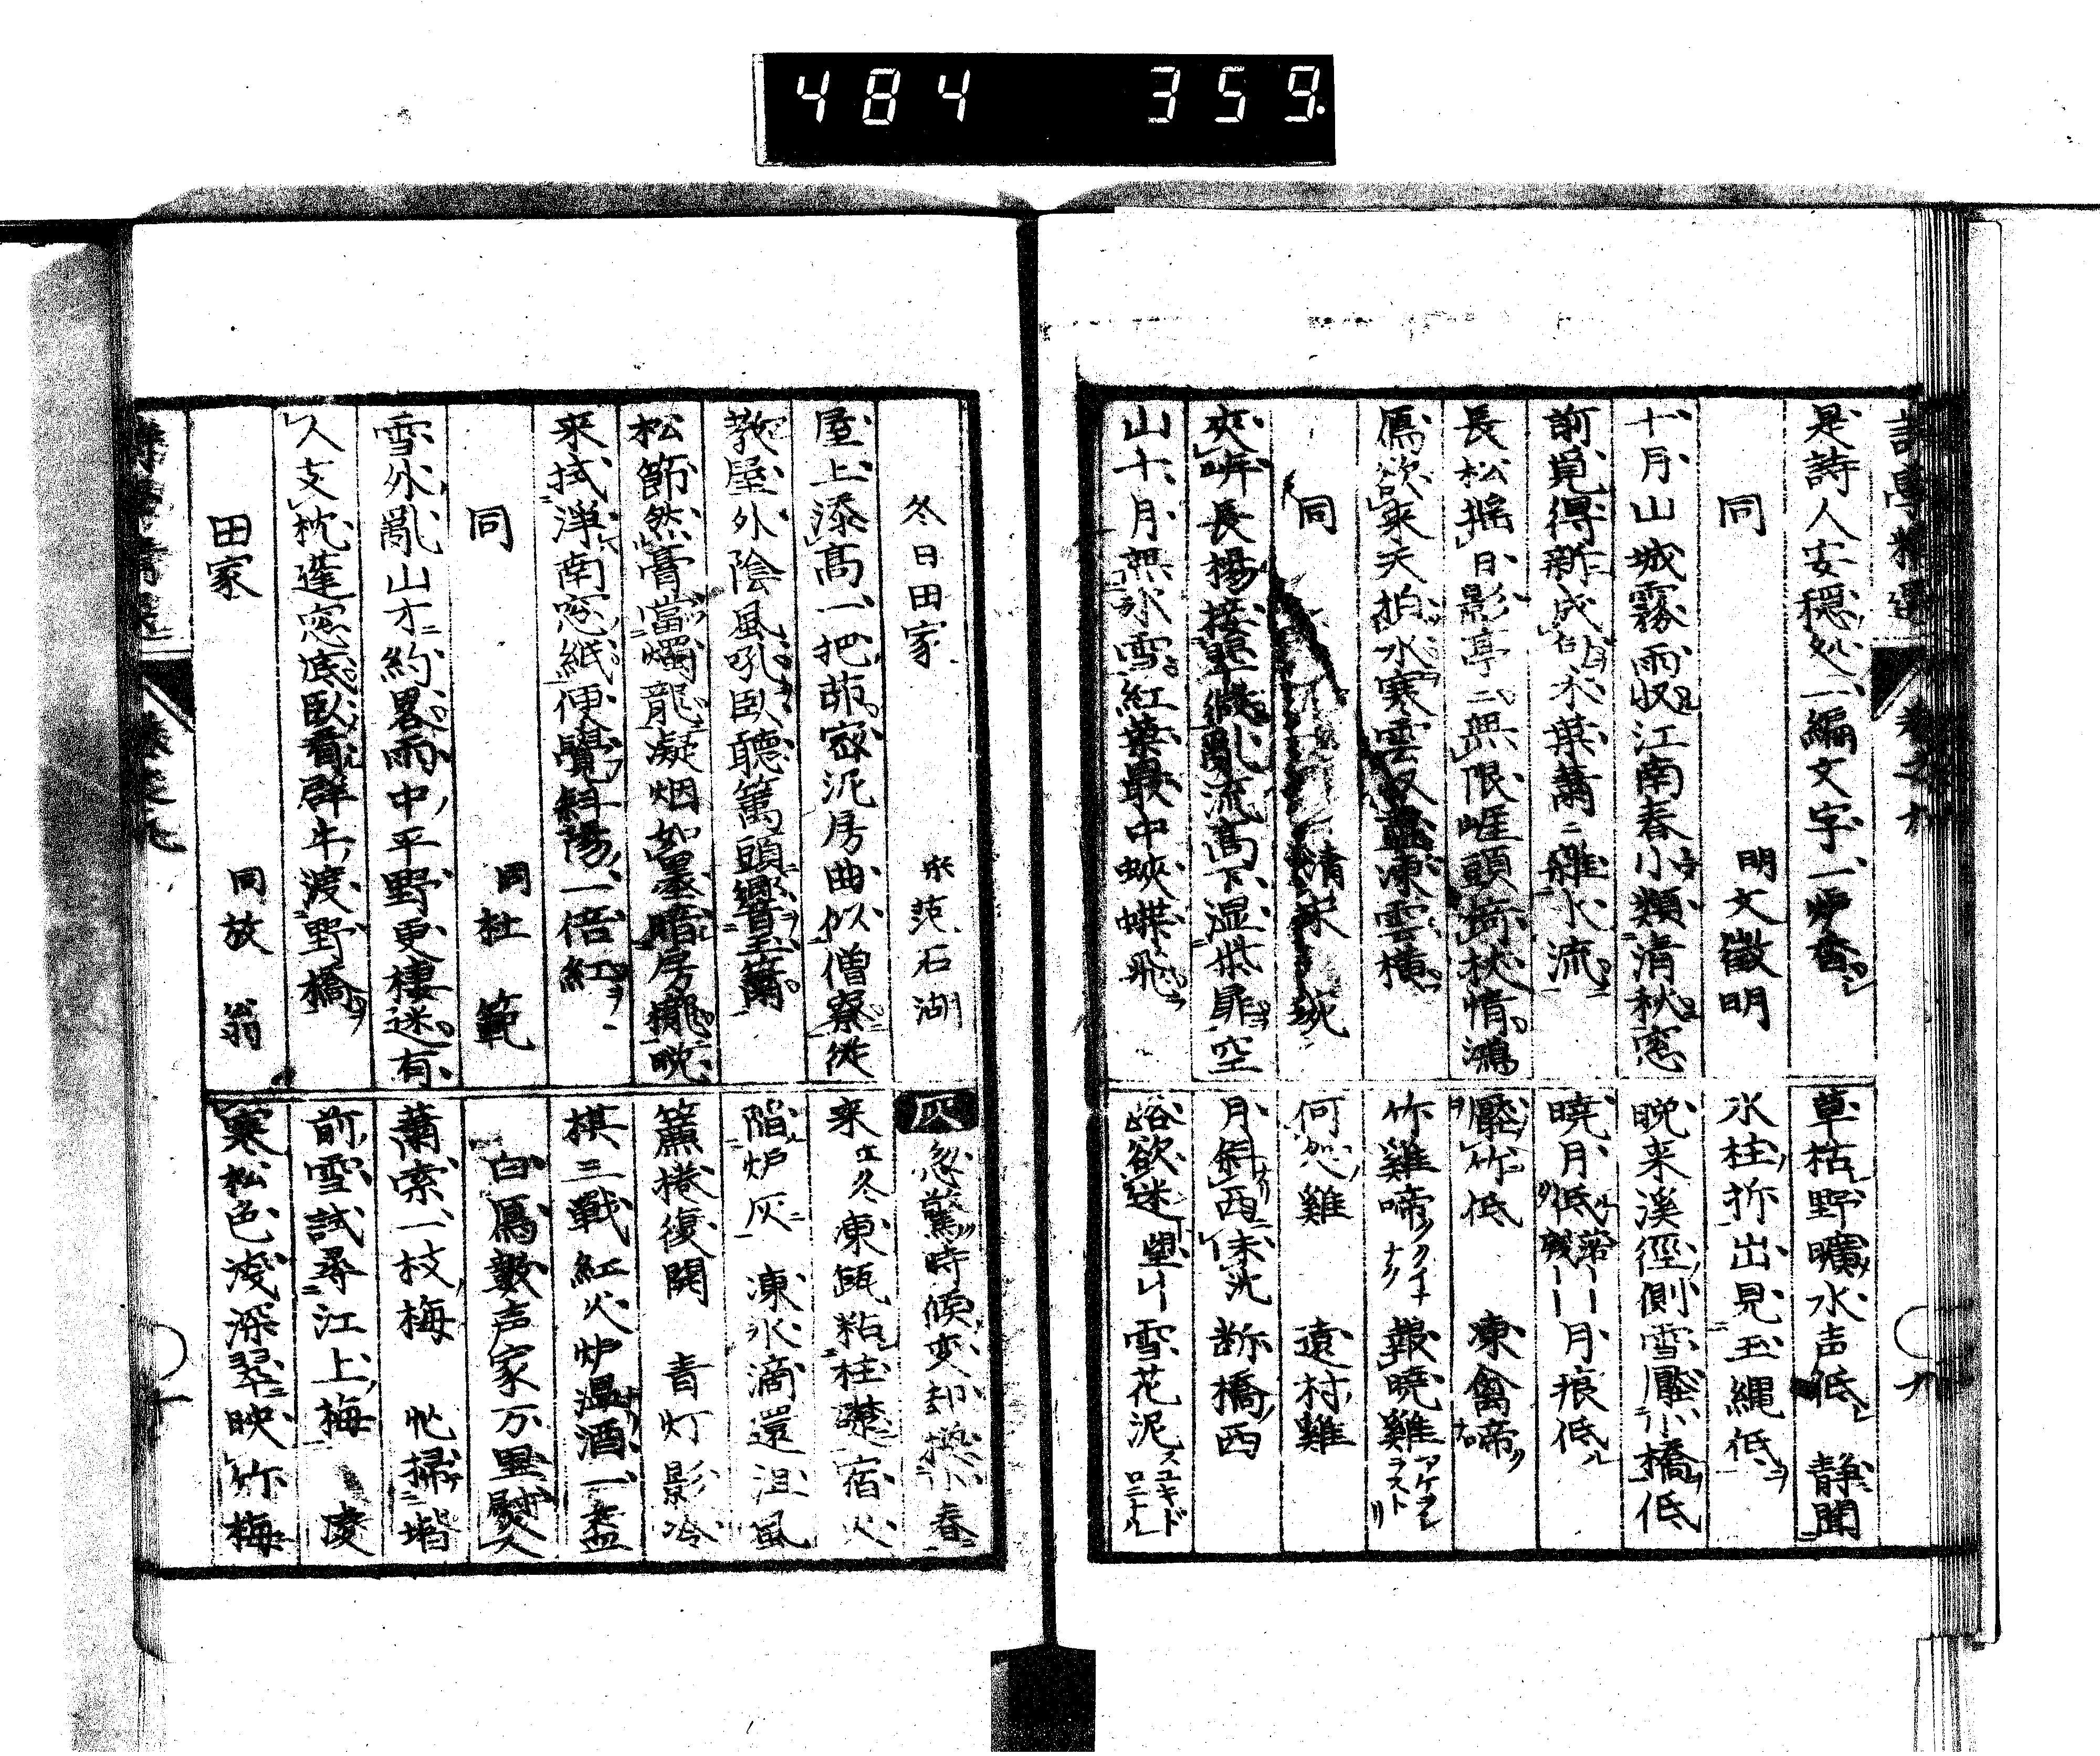 484 359
是詩人安穏処一編文字一炉香
同 明文徴明
十月山城霧雨収江南春小類清秋窓
前覓得新成 木葉蕭〻雜水流
長松揺日影亭〻無限崕頭 秋情鴻
鴈欲来天拍水寒雲 盡凍雲横
同 清宋琬
夾岸長楊接 乱流高下湿柴扉空
山十月無氷雪紅葉最中蛺蝶飛
草枯野曠水声低 静聞
氷柱折 出見玉縄低
晩来溪徑側雪壓小橋低
暁月低 落〡〡 残〡〡 月痕低
壓竹低 凍禽啼
竹雞啼 報暁雞
何怨雞 遠村雞
月斜西 未沈 断橋西
路欲迷 雪花泥
冬日田家 宋范石湖
屋上添高一把茆密泥房曲似僧寮従
教屋外陰風吼臥聴篱頭響玉簫
松節然膏當燭龍凝烟如墨暗房櫳晩
来拭浄南窓紙便覺斜陽一倍紅
同 同杜範
雪外亂山才約畧雨中平野更棲迷有
人支枕蓬窓底臥看群牛渡野橋
田家 同放翁
灰 忽驚時候変却换小春
来 冬凍瓶粘柱礎宿火
陷炉灰 凍氷滴還沮風
簾捲復開 青灯影冷
棋三戰紅火炉温酒一盃
白鴈數声家万里 人
蕭索一枝梅 忙掃堦
前雪試尋江上梅 凌
寒松色淺深翠映竹梅